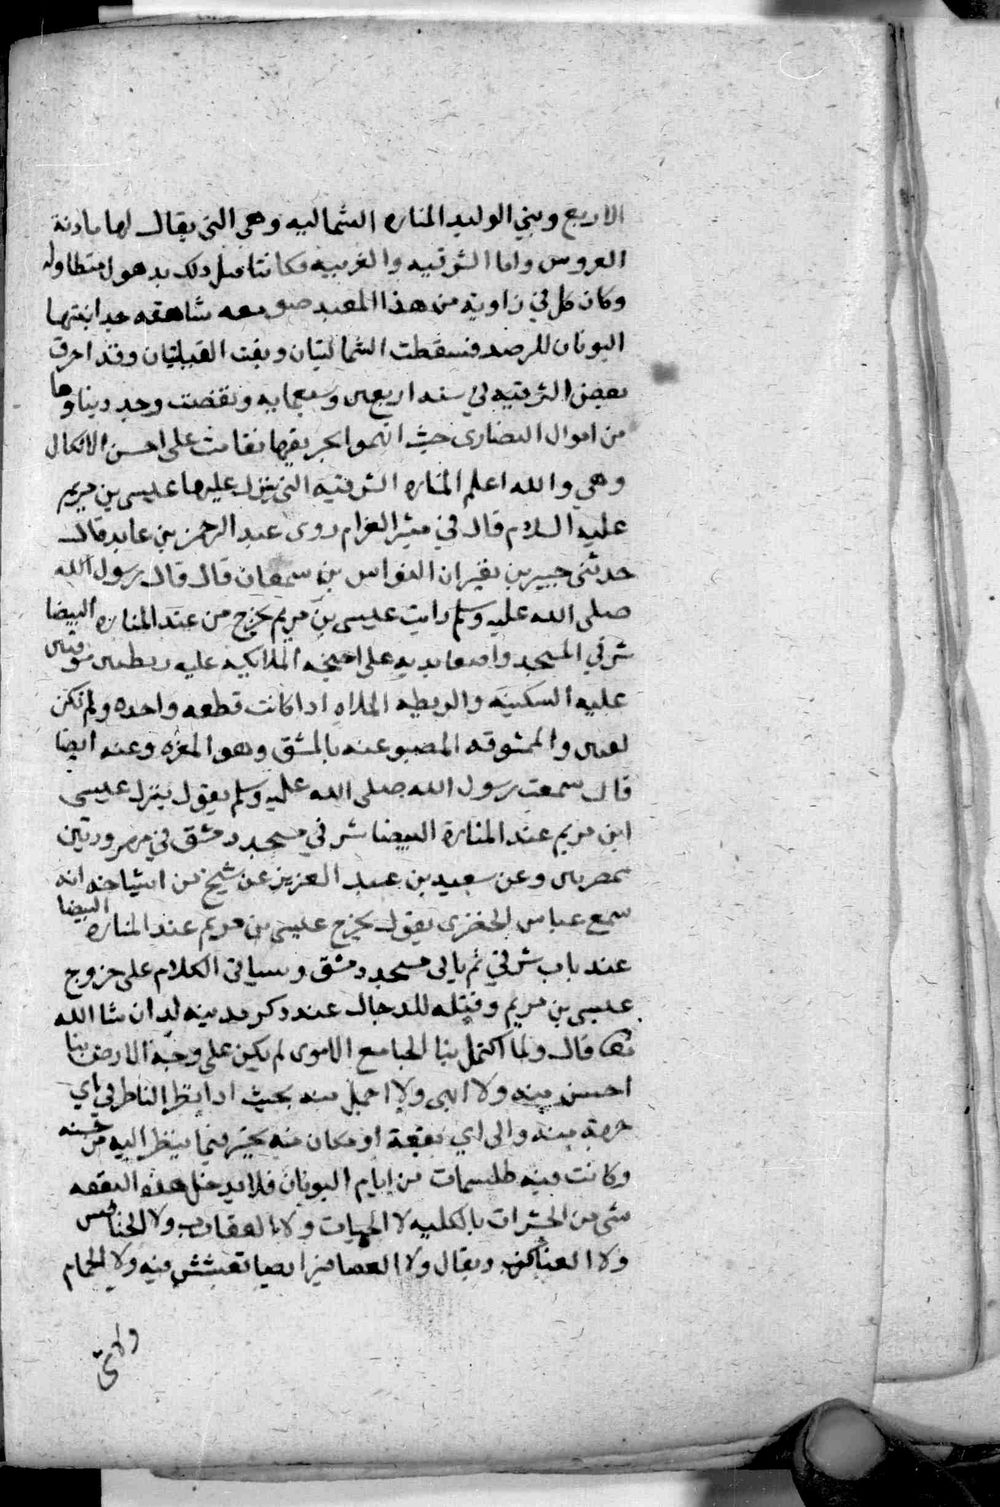 الاربع وبني الوليد المناره الشماليه وهي التي يقال لها مادنة
العروس واما الشرقيه والغربيه فكانتا قبل ذلك بدهور متطاوله
وكان كل في زاوية من هذا المعبد صومعه شاهقه جدا بنتها
اليونان للرصد فسقطت الشماليتان وبقت القبليتان وقد احرق
بعض الشرقيه في سنه اربعين وسبعمايه ونقضت وجدد بناوها
من اموال النصارى حيث اتهموا بحريقها فقامت على احسن الاشكال
وهي والله اعلم المناره الشرقيه التي ينزل عليها عيسى بن مريم
عليه السلام قال في مثير الغرام روى عبد الرحمن بن عايد قال
حدثني جبير بن نفير ان النواس بن سمعان قال قال رسول الله
صلى الله عليه وسلم رايت عيسى بن مريم يخرج من عند المناره البيضا
شرقي المسجد واضعا يديه على اجنحه الملايكه عليه ريطتين ممشوقتين
عليه السكينه والريطه الملاه اذا كانت قطعه واحده ولم تكن
لفقين والممشوقه المصبوغه بالمشق وهو المغره وعنه ايضا
قال سمعت رسول الله صلى الله عليه وسلم يقول ينزل عيسى
ابن مريم عند المنارة البيضا شرقي مسجد دمشق في مهرودتين
ممصرتين وعن سعيد بن عبد العزيز عن شيخ من اشياخه انه
سمع عباس الحضرمي يقول يخرج عيسى بن مريم عند المناره البيضا
عند باب شرقي ثم ياتي مسجد دمشق وسياتي الكلام على خروج
عيسى بن مريم وقتله للدجال عند ذكر مدينه لد ان شا الله
تعالى قال ولما اكتمل بنا الجامع الاموى لم يكن على وجه الارض بنا
احسن منه ولا ابهى ولا اجمل منه بحيث اذا نظر الناظر في اي
جهة منه والى اي بقعة او مكان منه يحير فيما ينظر اليه من حسنه
وكانت فيه طلسمات من ايام اليونان فلا يدخل هذه البقعه
شي من الحشرات بالكليه لا الحيات ولا العقارب ولا الخنافس
ولا العناكب ويقال ولا العصافير ايضا تعشش فيه ولا الحمام
ولا شي